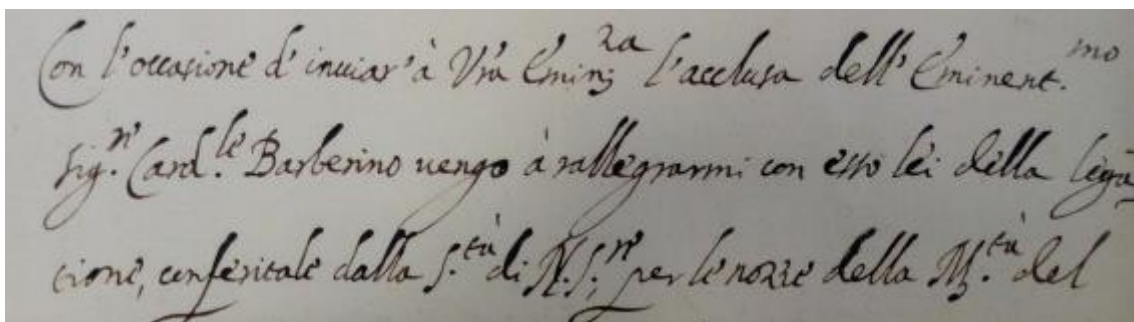 Con l'occasione d'inuiar'à Vra Emin.za l'acclusa dell'Eminent.mo
Sig.re Card.le Barberino uengo à rallegrarmi con esso lei della lega
tione, conferitale dalla S.tà di N. S.re per le nozze della M.tà del